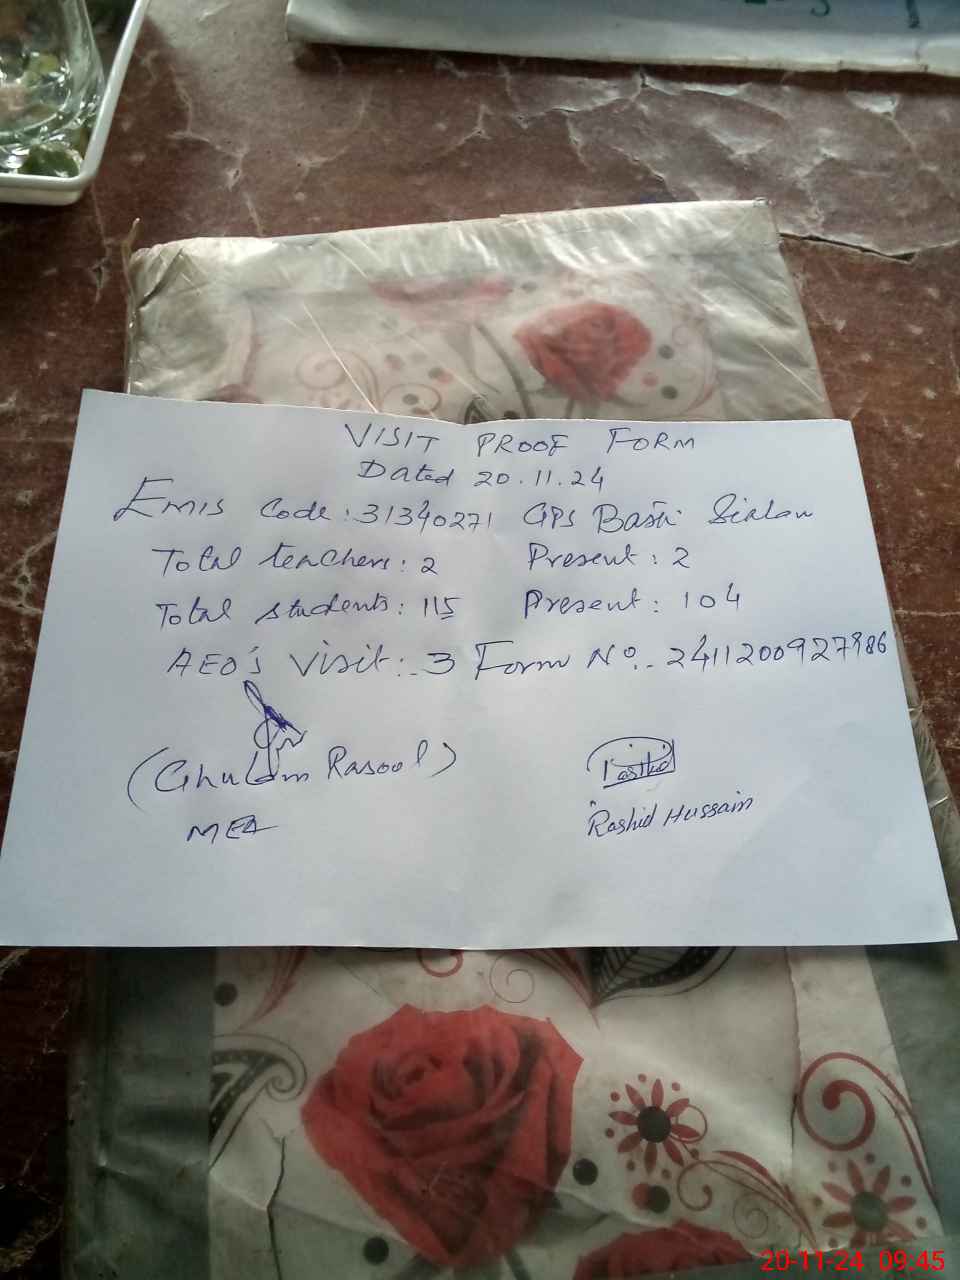 VISIT PROOF FORM
Dated 20.11.24
Emis Code: 31340271 GPS Basti Sialan
Total teachers: 2 Present: 2
Total students: 115 Present: 104
AEO's Visit:- 3 Form No.- 2411200927986
(Ghulam Rasool)
MEA
Rashid
Rashid Hussain
20-11-24 09:45